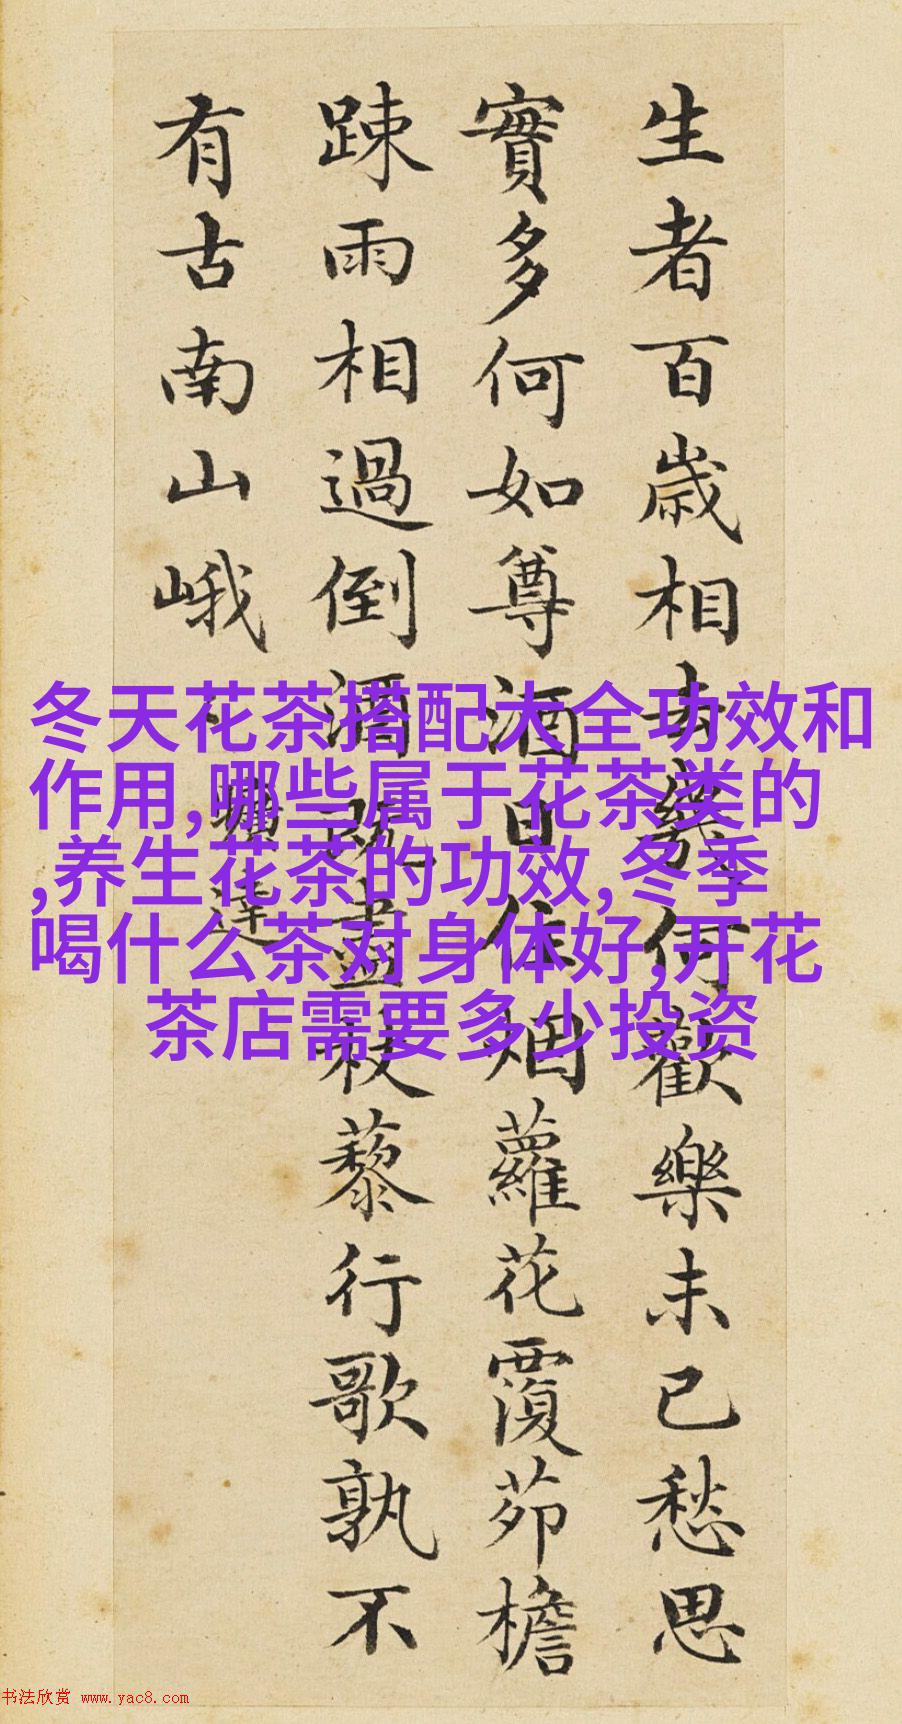 生者百歲相去幾何歡樂未已愁思
實多何如尊酒日住烟蘿花覆茆檐
踈雨相過倒酒既盡杖藜行歌孰不
有古南山峨
曠達
冬天花茶搭配大全功效和
作用,哪些属于花茶类的
,养生花茶的功效,冬季
喝什么茶对身体好,开花
茶店需要多少投资
书法欣赏 www.yac8.com